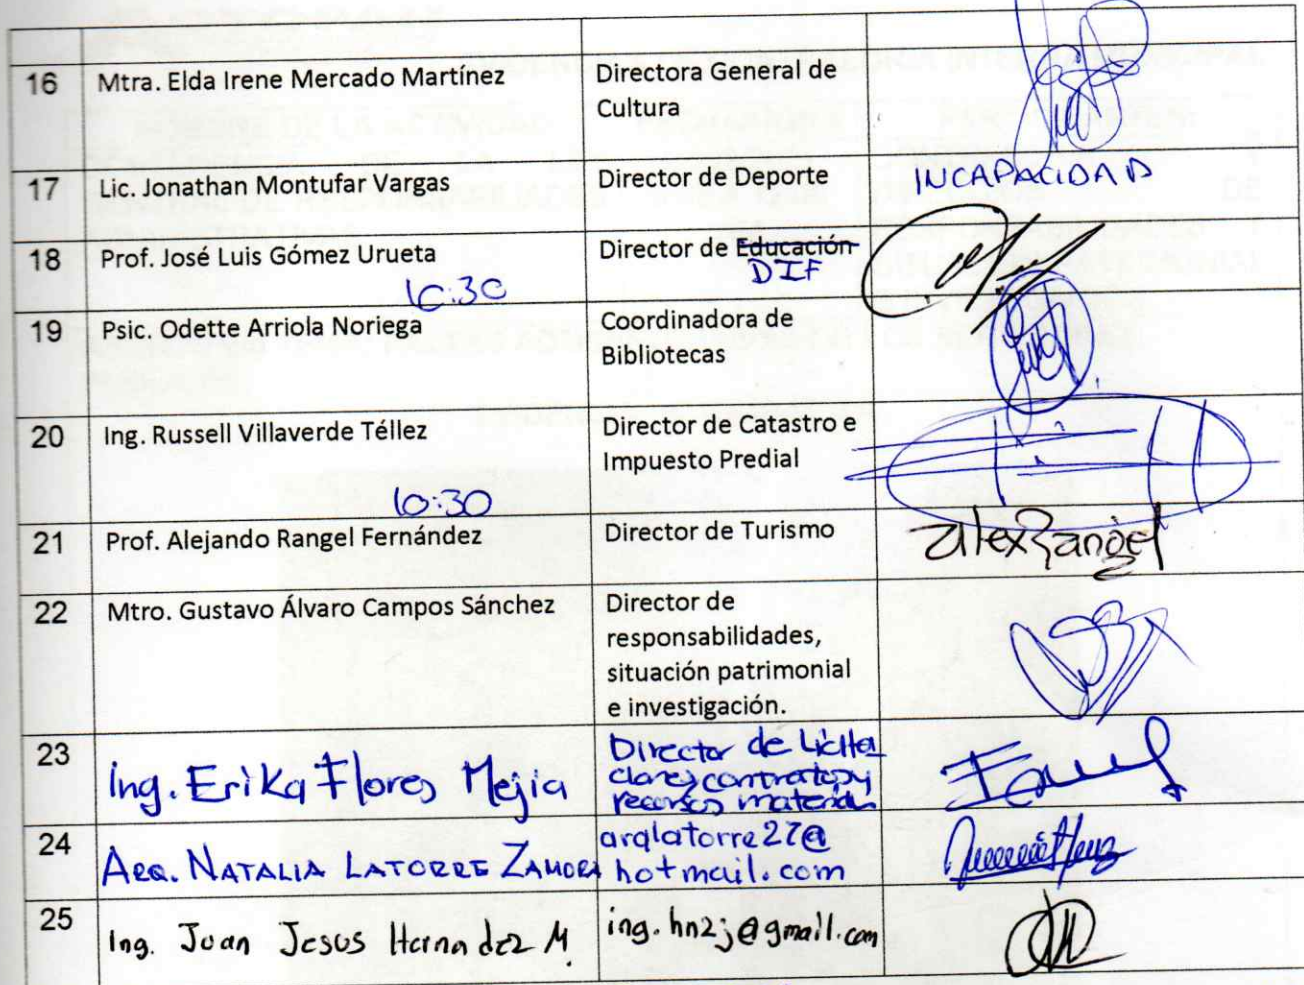 16 Mtra. Elda Irene Mercado Martínez Directora General de
Cultura
17 Lic. Jonathan Montufar Vargas Director de Deporte INCAPACIDAD
18 Prof. José Luis Gómez Urueta Director de Educación
10:30 DIF
19 Psic. Odette Arriola Noriega Coordinadora de
Bibliotecas
20 Ing. Russell Villaverde Téllez Director de Catastro e
Impuesto Predial
10:30
21 Prof. Alejando Rangel Fernández Director de Turismo alexRangel
22 Mtro. Gustavo Álvaro Campos Sánchez Director de
responsabilidades,
situación patrimonial
e investigación.
23 Ing. Erika Flores Mejia Director de Licita
ciones contratos y
recursos materiales
24 Arq. NATALIA LATORRE ZAMORA arqlatorre27@
hotmail.com
25 Ing. Juan Jesus Hernadez M. ing.hn2j@gmail.com